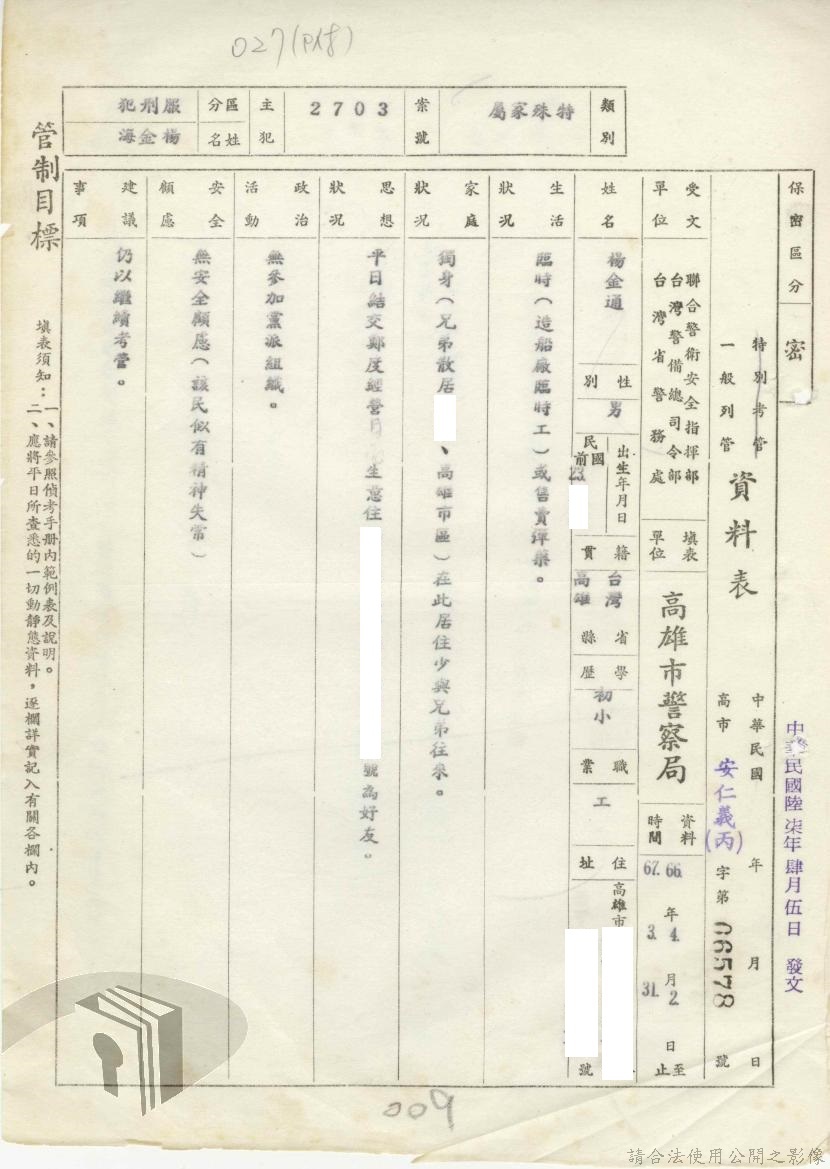 027(P18)
類別
特殊家屬
案號
2703
主犯
區分
服刑犯
姓名
楊金海
管制目標
填表須知：一、請參照偵考手册內範例表及說明。
二、應將平日所查悉的一切動靜態資料，逐欄詳實記入有關各欄內。
中華民國陸柒年肆月伍日 發文
保密區分
密
特別考管
一般列管
資料表
中華民國 年 月 日
高市 安仁義(丙) 字第 06578 號
受文單位
聯合警衛安全指揮部
台灣警備總司令部
台灣省警務處
填表單位
高雄市警察局
資料時間
66 年 4 月 2 日至
67. 3. 31. 止
姓名
楊金通
性別
男
出生年月日
民國前 23.
籍貫
台灣省
高雄縣
學歷
初小
職業
工
住址
高雄市
號
生活狀況
臨時(造船廠臨時工)或售賣彈藥。
家庭狀況
獨身(兄弟散居 、高雄市區)在此居住少與兄弟往來。
思想狀況
平日結交鄭度經營 生意住 號為好友。
政治活動
無參加黨派組織。
安全顧慮
無安全顧慮(該民似有精神失常)
建議事項
仍以繼續考管。
009
請合法使用公開之影像